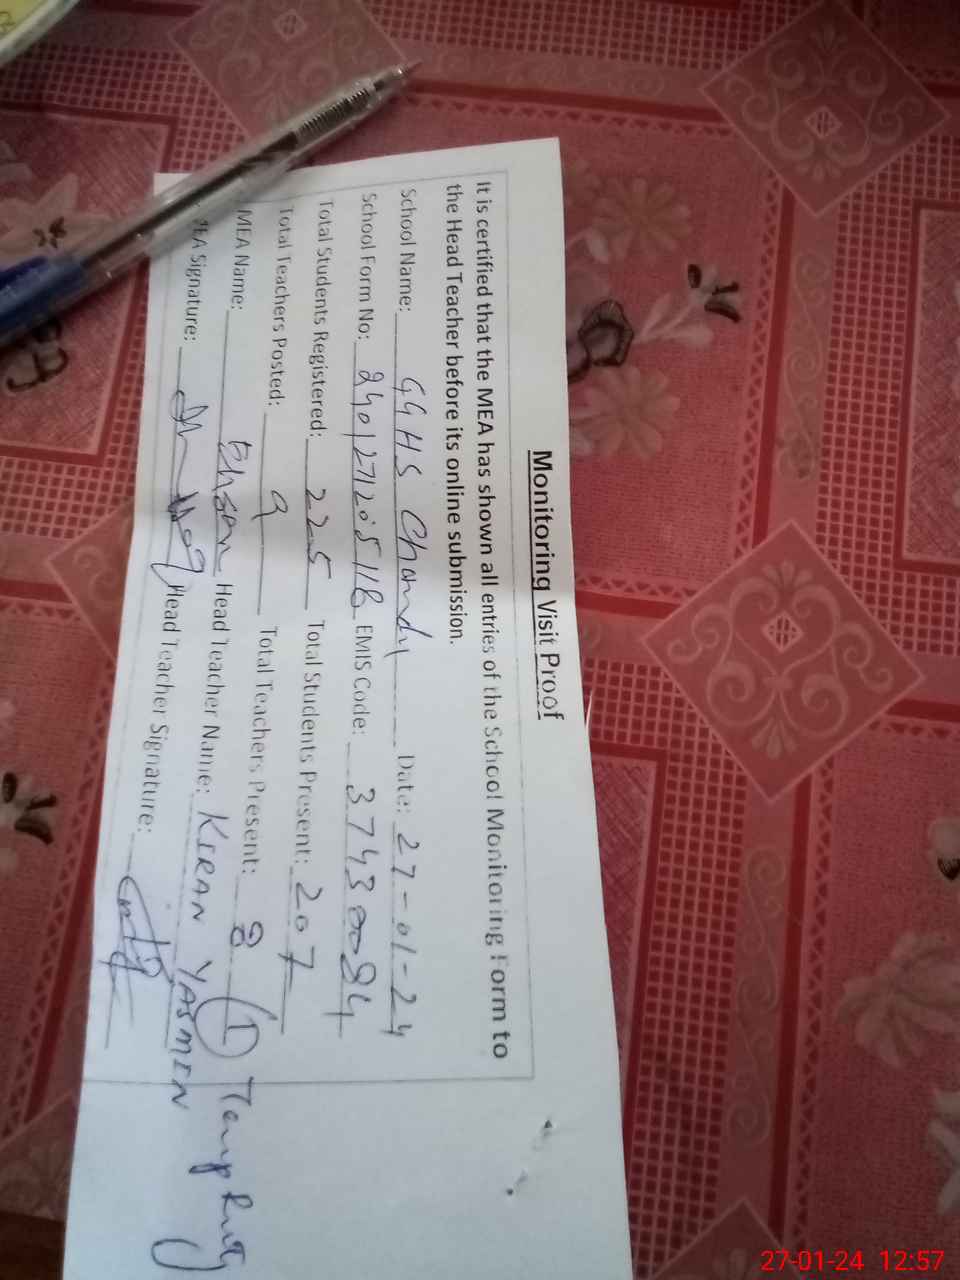 Monitoring Visit Proof
It is certified that the MEA has shown all entries of the School Monitoring Form to
the Head Teacher before its online submission.
School Name: GGHS Chandy Date: 27-01-24
School Form No: EMIS Code: 37430084
Total Students Registered: 225 Total Students Present: 207
Total Teachers Posted: 9 Total Teachers Present: 8 (1) Temp
MEA Name: Ehsan Head Teacher Name: KIRAN YASMIN
MEA Signature: Head Teacher Signature:
27-01-24 12:57